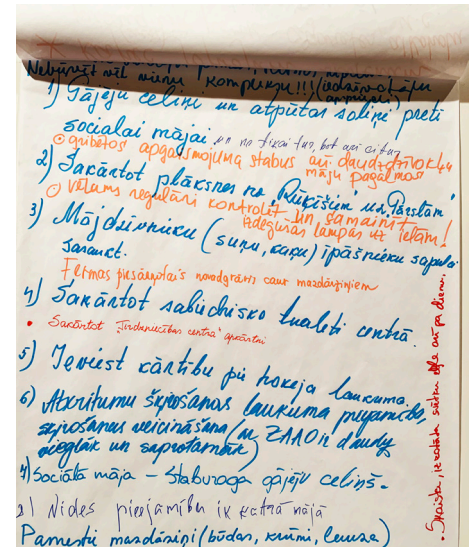 Nebūvēt vēl vienu kompleksu!!! (iedzīvotāju
1) Gājēju celiņi un atpūtas soliņi preti
sociālai mājai un ne tikai tur, bet arī citur
gribētos apgaismojuma stabus arī daudzdzīvokļu
māju pagalmos
2) Sakārtot plāksnes no "Rūķīšiem" uz "Pārslām"
Vēlams regulāri kontrolēt un samainīt
izdegušās lampas uz ielām!
3) Mājdzīvnieku (suņu, kaķu) īpašnieku sapulci
sasaukt.
Fermas piesārņotais novadgrāvis caur mazdārziņiem
4) Sakārtot sabiedrisko tualeti centrā.
• Sakārtot "Tirdzniecības centra" apkārtni
5) Ieviest kārtību pie hokeja laukuma.
6) Atkritumu šķirošanas laukuma pieejamība,
šķirošanas veicināšana (no ZAAO ir daudz
vieglāk un saprotamāk)
7) Sociālā māja – Staburaga gājēju celiņš.
Nides pieejamība ik katrā mājā
Pamesti mazdārziņi (būdas, krūmi,
• Skaista, iz arī pa dienu.